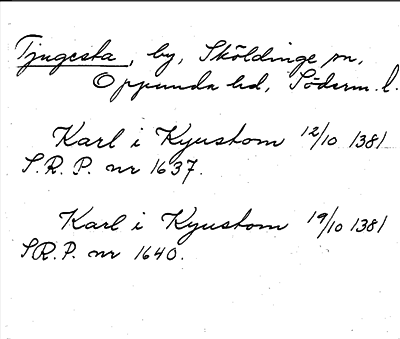 Tjugesta, by, Sköldinge sn,
Oppunda hd, Söderm. l.
Karl i Kyustom 12/10 1381
S.R.P. nr 1637.
Karl i Kyustom 19/10 1381
S.R.P. nr 1640.